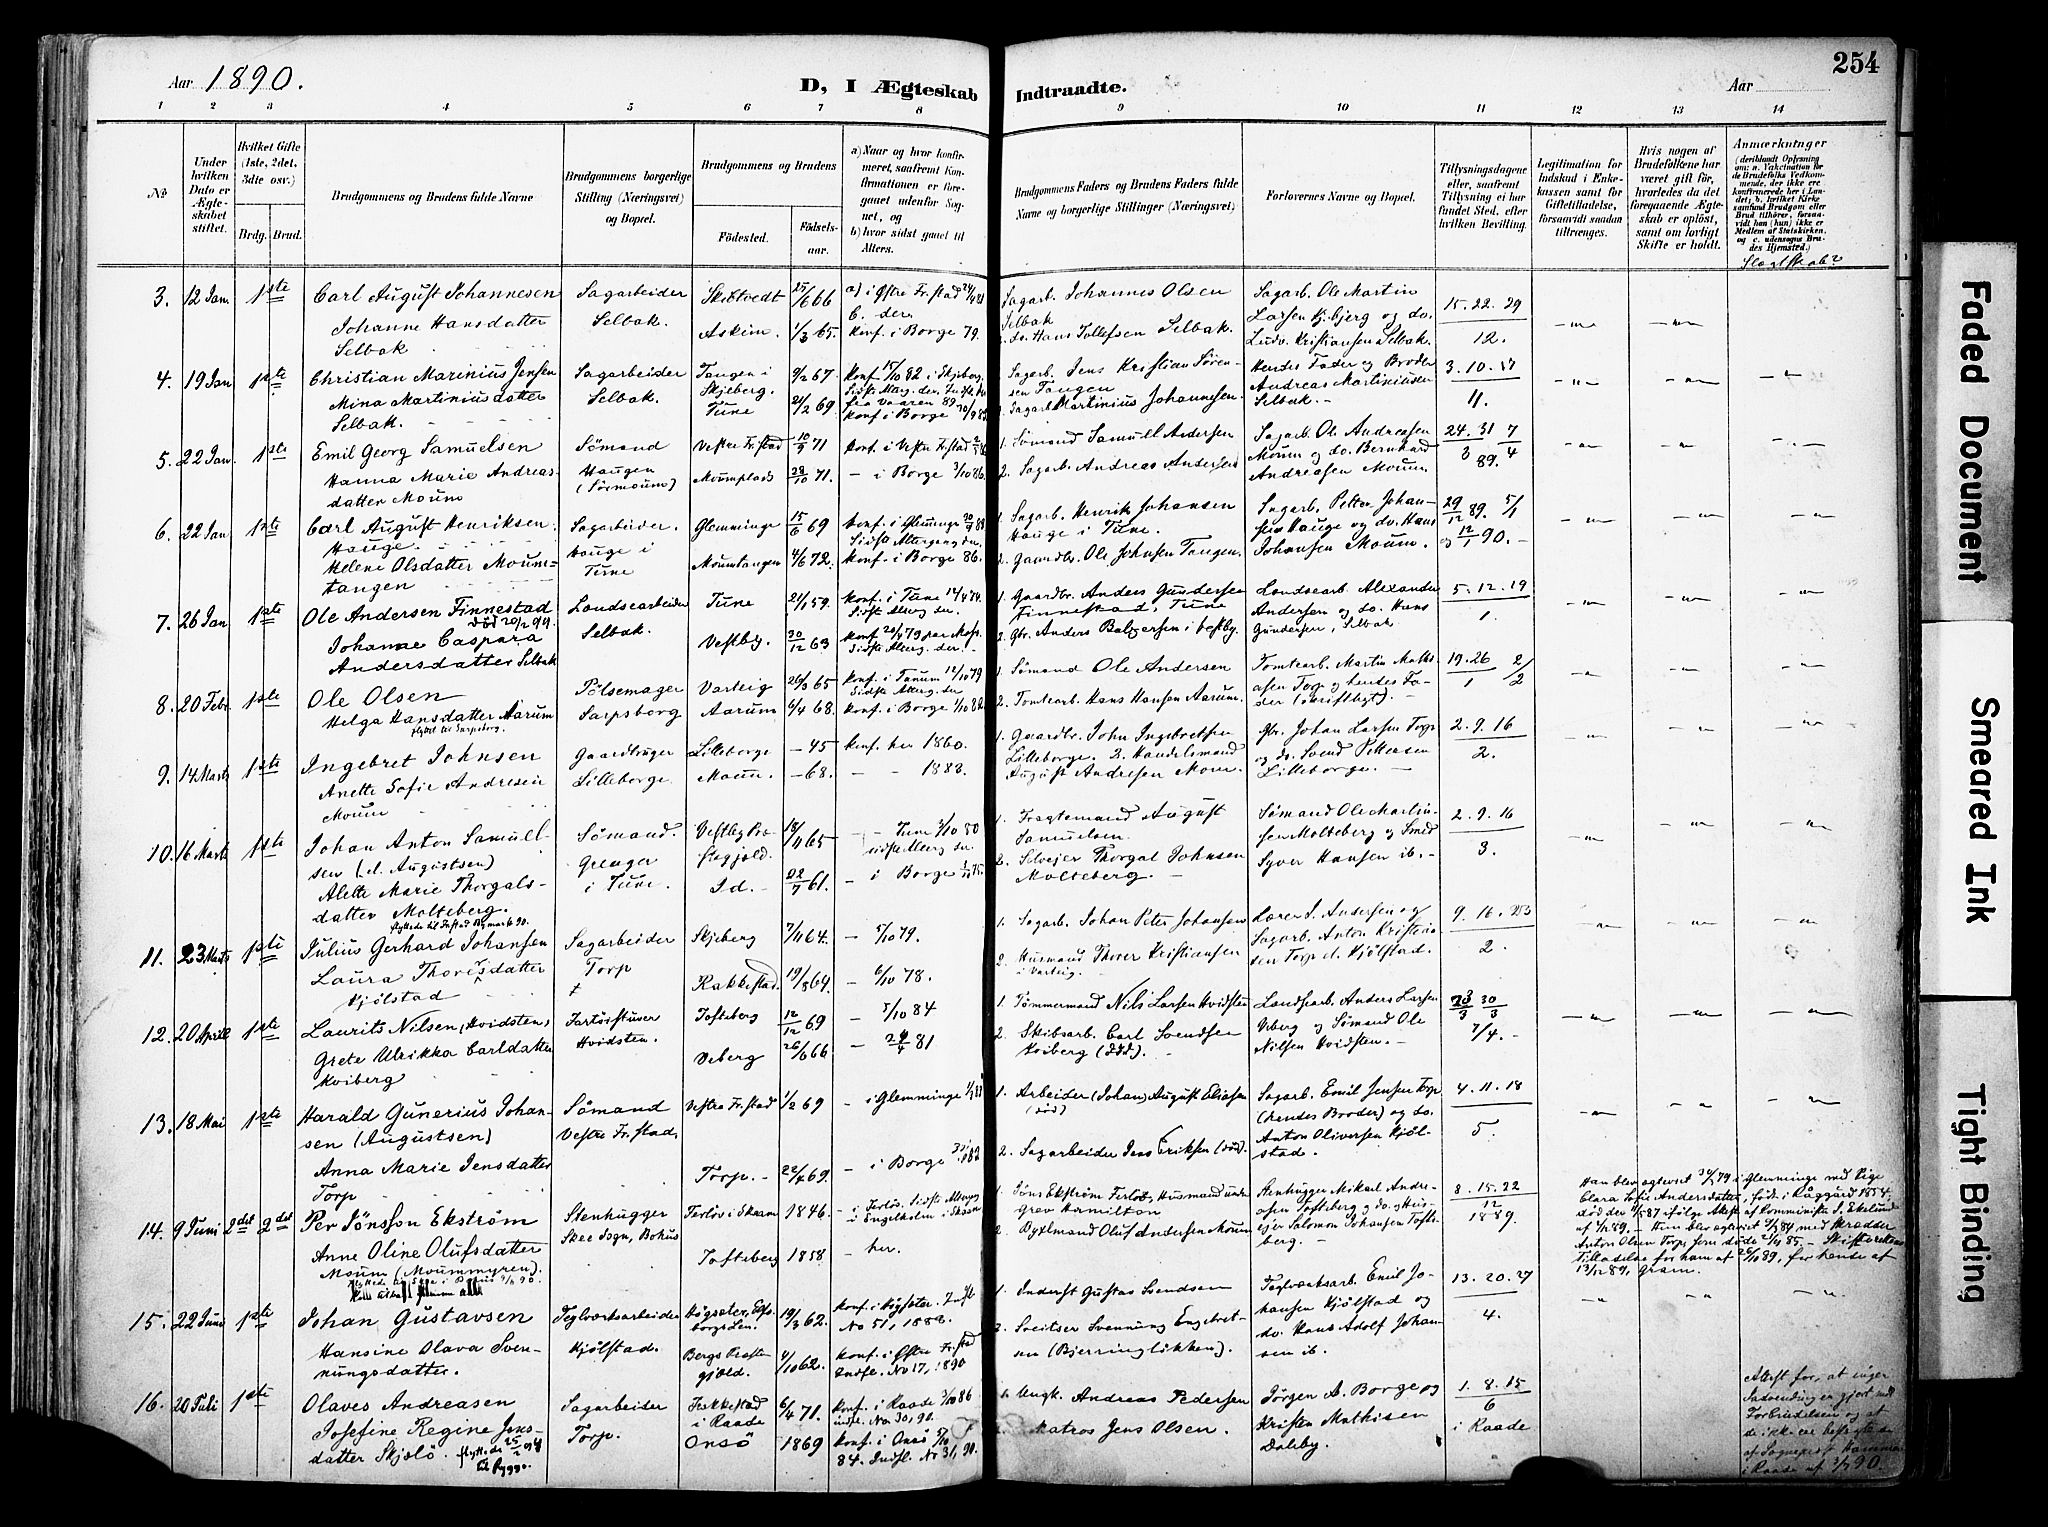 Aar 1890.
D, I Ægteskab Indtraadte.
Aar
254
1 2 3 4 5 6 7 8 9 10 11 12 13 14
No
Under hvilken Dato er Ægteskabet stiftet.
Hvilket Gifte (1ste, 2det, 3die osv.)
Brdg. Brud.
Brudgommens og Brudens fulde Navne
Brudgommens borgerlige Stilling (Næringsvei) og Bopæl.
Brudgommens og Brudens
Fødested. Fødselsaar.
a) Naar og hvor konfirmeret, saafremt Konfirmationen er foregaaet udenfor Sognet, og
b) hvor sidst gaaet til Alters.
Brudgommens Faders og Brudens Faders fulde Navne og borgerlige Stillinger (Næringsvei)
Forlovernes Navne og Bopæl.
Tillysningsdagene eller, saafremt Tillysning ei har fundet Sted, efter hvilken Bevilling.
Legitimation for Indskud i Enkekassen samt for Giftetilladelse, forsaavidt saadan tiltrænges.
Hvis nogen af Brudefolkene har været gift før, hvorledes da det foregaaende Ægteskab er opløst, samt om lovligt Skifte er holdt.
Anmærkninger
Slægtskab?
3. 12 Jan. 1ste Carl August Johannesen
Johanne Hansdatter
Selbak
Sagarbeider
Selbak.
Skibtvedt 25/6 66
Askim. 1/3 65.
a) i Østre Fr.stad
b. der
Konf. i Borge 79.
Sagarb. Johannes Olsen
Selbak
do. Hans Tollefsen Selbak.
Sagarb. Ole Martin
Larsen Kjbjerg og do.
Ludv. Kristiansen Selbak.
15. 22. 29
12.
4. 19 Jan 1ste Christian Marinius Jensen
Mina Martiniusdatter
Selbak.
Sagarbeider
Selbak.
Tangen i
Skjeberg. 9/2 67.
Tune 21/2 69
Konf 15/10 82 i Skjeberg.
konf i Borge
Sagarb. Jens Kristian Sørensen
Tangen
2. Sagarb. Martinius Johannesen.
Hendes Fader og Broder
Andreas Martiniussen
Selbak.
3. 10. 17
11.
5. 22 Jan. 1ste Emil Georg Samuelsen
Hanna Marie Andreasdatter
Moum
Sømand
Haugen
(Sørmoum)
Vestre Fr.stad 10/9 71
Moumplads 28/10 71.
Konf. i Vestre Fr.stad
- i Borge 3/10 86.
1. Sømand Samuel Andersen
2. Sagarb. Andreas Andersen
Sagarb. Ole Andreasen
Moum og do. Bernhard
Andreasen Moum
24. 31 7
3 89. 4
6. 22 Jan 1ste Carl August Henriksen
Hauge.
Helene Olsdatter Moumtangen
Sagarbeider.
Hauge i
Tune
Glemminge 15/6 69
Moumtangen 4/6 72.
Konf. i Glemminge
Sidst Altergang der.
Konf. i Borge 86.
1. Sagarb. Henrik Johansen
Hauge i Tune
2. Gaardbr. Ole Johnsen Tangen.
Sagarb. Petter Johansen
Hauge og do. Hans
Johansen Moum.
29/12 89. 5/1
og 12/1 90.
7. 26 Jan 1ste Ole Andersen Finnestad
død 20/2 94.
Johanne Caspara
Andersdatter Selbak
Landsearbeider
Selbak.
Tune 21/1 59.
Vestby. 30/12 63
Konf. i Tune
Sidste Alterg. der.
1. Gaardbr. Anders Gundersen
Finnestad, Tune
2. Gbr. Anders Balzersen i Vestby.
Landsearb Alexander
Andersen og do. Hans
Gundersen, Selbak
5. 12. 19
1.
8. 20 Febr. 1ste Ole Olsen
Helga Hansdatter Aarum
flyttet til Sarpsborg.
Pølsemager
Sarpsborg
Varteig 26/3 65
Aarum 6/4 68.
Konf. i Tanum 12/10 79
Sidste Alterg. der
Konf. i Borge
1. Sømand Ole Andersen
2. Tomtearb. Hans Hansen Aarum.
Tomtearb. Martin Mathisen
Torp og hendes Fader
(skriftligt).
19. 26 2
1 2
9. 14 Marts 1ste Ingebret Johnsen
Anette Sofie Andresen
Moum
Gaardbruger
Lilleborge
Lilleborge - 45
Moum. - 68.
konf. her 1860.
- - 1883.
1. Gaardbr. John Ingebretsen
Lilleborge. 2. Handelsmand
August Andresen Moum.
Gbr. Johan Larsen Torp
og do. Svend Pettersen
Lilleborge.
2. 9. 16
2.
10. 16 Marts 1ste Johan Anton Samuelsen
(d. Augustsen)
Alette Marie Thorgalsdatter
Molteberg.
Sømand.
Greager
i Tune.
Vestby Præstegjeld. 18/4 65
Id. 22/7 61.
- Tune 3/10 80
sidste Alterg. der.
- i Borge
1. Fragtemand August
Samuelsen.
2. Selveier Thorgal Johnsen
Molteberg.
Sømand Ole Martinsen
Molteberg og Smed
Syver Hansen ib.
2. 9. 16
3.
11. 23 Marts 1ste Julius Gerhard Johansen
Laura Thoresdatter
Kjølstad
Sagarbeider
Torp
Skjeberg 7/11 64.
Rakkestad. 19/8 64.
- 5/10 79.
- 6/10 78.
1. Sagarb. Johan Peter Johansen
2. Husmand Thorer Kristiansen
i Varteig.
Lærer S. Andersen og
Sagarb. Anton Kristiansen
Torp d. Kjølstad.
9. 16. 23
2.
12. 20 April 1ste Laurits Nilsen (Hvidsten)
Grete Ulrikka Carldatter
Kviberg
Fartøistuer
Hvidsten.
Tofteberg 12/12 69
Viberg 26/6 66
- 5/10 84
- 24/4 81
1. Tømmermand Nils Larsen Hvidsten
2. Skibsarb. Carl Svendsen
Kviberg (død).
Landsearb. Anders Larsen
Viberg og Sømand Ole
Nilsen Hvidsten.
23/3 30/3
7/4.
13. 18 Mai 1ste Harald Gunerius Johansen
(Augustsen)
Anna Marie Jensdatter
Torp
Sømand
Vestre Fr.stad,
Vestre Fr.stad 1/2 69
Torp. 22/4 69.
- i Glemminge
- i Borge
1. Arbeider (Johan) August Eliasen
(død)
2. Sagarbeider Jens Eriksen (død).
Sagarb. Emil Jensen Torp
(hendes Broder) og do.
Anton Oliversen Kjølstad.
4. 11. 18
5.
14. 9 Juni 2det 2det Per Jönsson Ekström
Anne Oline Olufsdatter
Moum (Moummyren).
Stenhugger
Skee Sogn, Bohus
Ferlöv i Skaane 1846
Tofteberg 1858
- i Ferlöv. Sidste Alterg.
i Engelholm i Skaane
- her.
1. Jöns Ekström Ferlöv, Husmand under
Grev Hamilton
2. Bygselmand Oluf Andersen Moum
Stenhugger Mikael Andreasen
Tofteberg og do. og Huseier
Salomon Johansen Tofteberg.
8. 15. 22
12
1889.
Han blev egteviet i Glemminge med Pige
Clara Sofie Andersdatter, født i Råggård 1854.
død der 87 ifølge Attest af Komminister S. Ekelund
Anton Olsen Torp, som døde
Tilladelse for ham af 26/10 89, for hende af
13/12 89, Gram.
15. 22 Juni 1ste Johan Gustavsen
Hansine Olava Svenningsdatter.
Teglværksarbeider
Kjølstad.
Högsäter, Elfsborgs Len. 19/3 62.
Bergs Præstegjeld. 4/10 62.
Konf. i Högsäter. Indfl.
No 51, 1883.
Konf. i Østre Fr.stad
Indfl. No 17, 1890
1. Inderst Gustav Svendsen
2. Sveitser Svenning Engebretsen
(Bjerringlikken).
Teglværksarb. Emil Johansen
Kjølstad og
do. Hans Adolf Johansen
ib.
13. 20. 27
4.
16. 20 Juli 1ste Olaves Andreasen
Josefine Regine Jensdatter
Skjølø. flyttede 25/2 94
til Rygge.
Sagarbeider
Torp.
i Raade 6/4 71.
Onsö 1869
Konf. i Raade 3/10 86
indfl. No. 30, 90.
Konf. i Onsö 5/10
84. Indfl. Nr 31, 90.
1. Ungk. Andreas Pedersen
Matros Jens Olsen.
Jörgen A. Borge og
Kristen Mathisen
Dalsby.
1. 8. 15
6
i Raade
Attest for, at ingen
Indvending er gjort mod
Forbindelsen og at
de ikke ere beslegtede
af Sogneprest
i Raade af 3/7 90.
Faded Document
Smeared Ink
Tight Binding